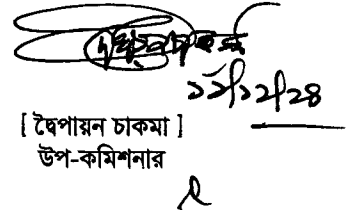 ১২/১২/২৪
[ দ্বৈপায়ন চাকমা ]
উপ-কমিশনার